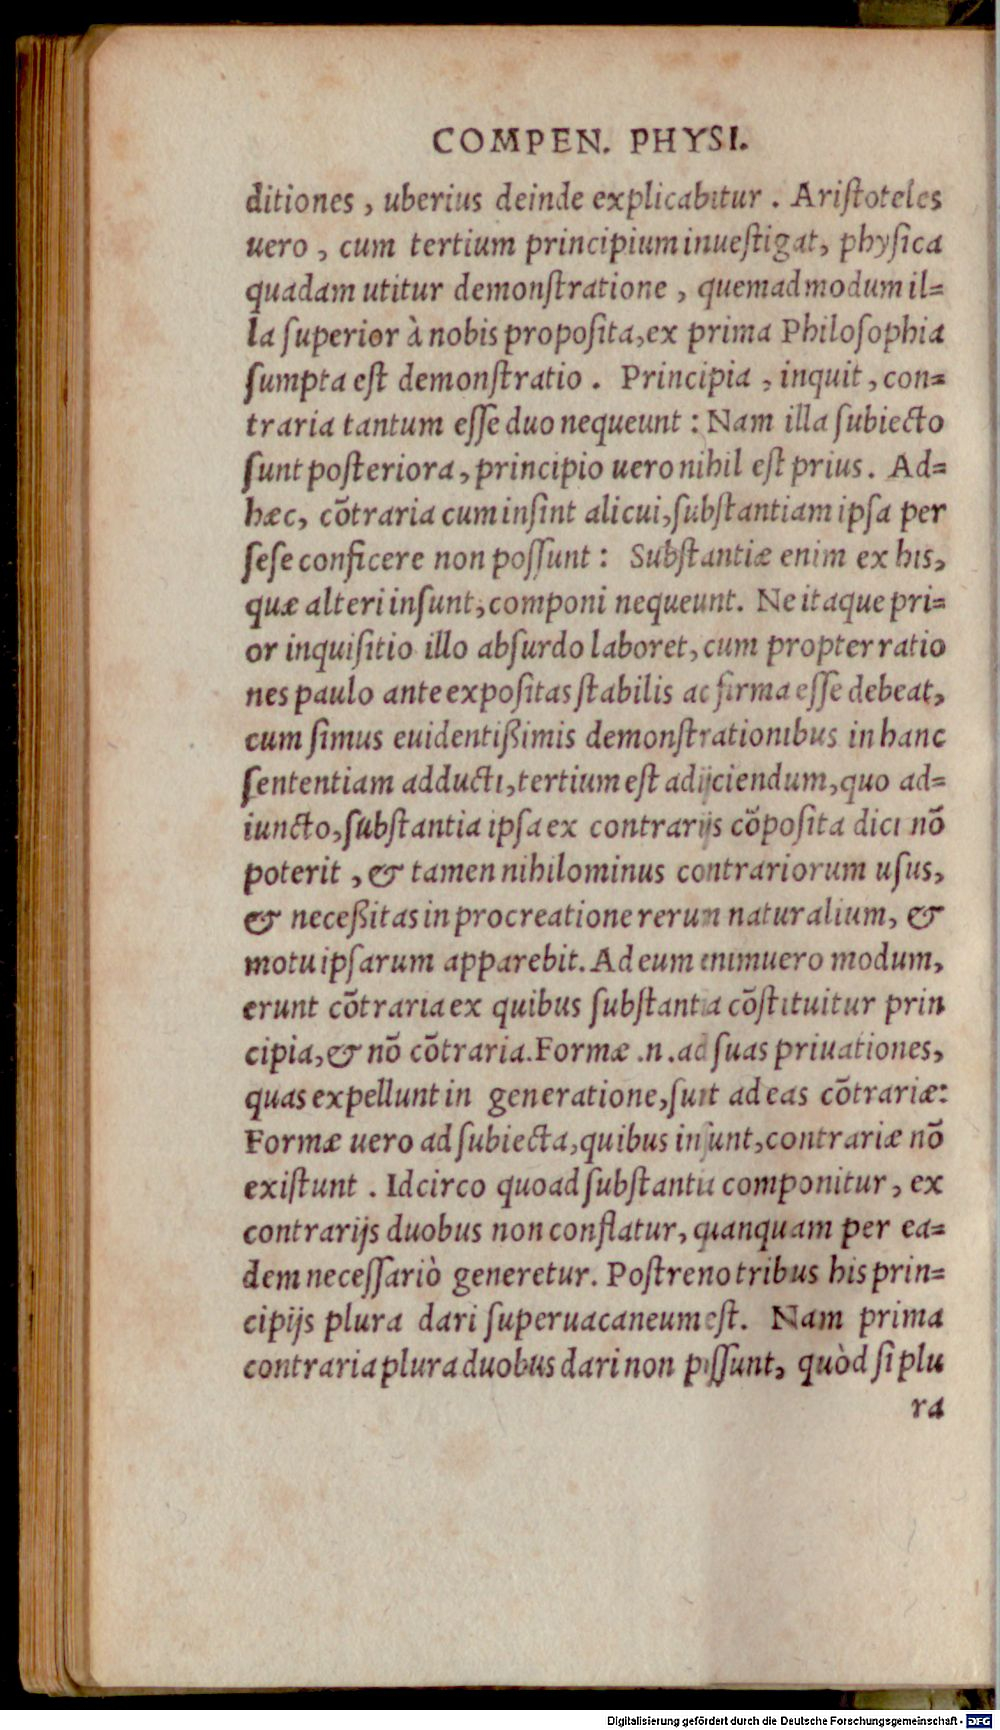 COMPEN. PHYSI.
ditiones, uberius deinde explicabitur. Ariſtoteles
uero, cum tertium principium inueſtigat, phyſica
quadam utitur demonſtratione, quemadmodum il=
la ſuperior à nobis propoſita, ex prima Philoſophia
ſumpta eſt demonſtratio. Principia, inquit, con=
traria tantum eſſe duo nequeunt: Nam illa ſubiecto
ſunt poſteriora, principio uero nihil eſt prius. Ad=
hæc, cõtraria cum inſint alicui, ſubſtantiam ipſa per
ſeſe conficere non poſſunt: Subſtantiæ enim ex his,
quæ alteri inſunt, componi nequeunt. Ne itaque pri=
or inquiſitio illo abſurdo laboret, cum propter ratio
nes paulo ante expoſitas ſtabilis ac firma eſſe debeat,
cum ſimus euidentißimis demonſtrationibus in hanc
ſententiam adducti, tertium eſt adijciendum, quo ad=
iuncto, ſubſtantia ipſa ex contrarijs cõpoſita dici nõ
poterit, & tamen nihilominus contrariorum uſus,
& neceßitas in procreatione rerum naturalium, &
motu ipſarum apparebit. Ad eum enimuero modum,
erunt cõtraria ex quibus ſubſtantia cõſtituitur prin
cipia, & nõ cõtraria. Formæ .n. ad ſuas priuationes,
quas expellunt in generatione, ſunt ad eas cõtrariæ:
Formæ uero ad ſubiecta, quibus inſunt, contrariæ nõ
exiſtunt. Idcirco quoad ſubſtantia componitur, ex
contrarijs duobus non conflatur, quanquam per ea=
dem neceſſariò generetur. Poſtremo tribus his prin=
cipijs plura dari ſuperuacaneum eſt. Nam prima
contraria plura duobus dari non poſſunt, quòd ſi plu
ra
Digitalisierung gefördert durch die Deutsche Forschungsgemeinschaft - DFG